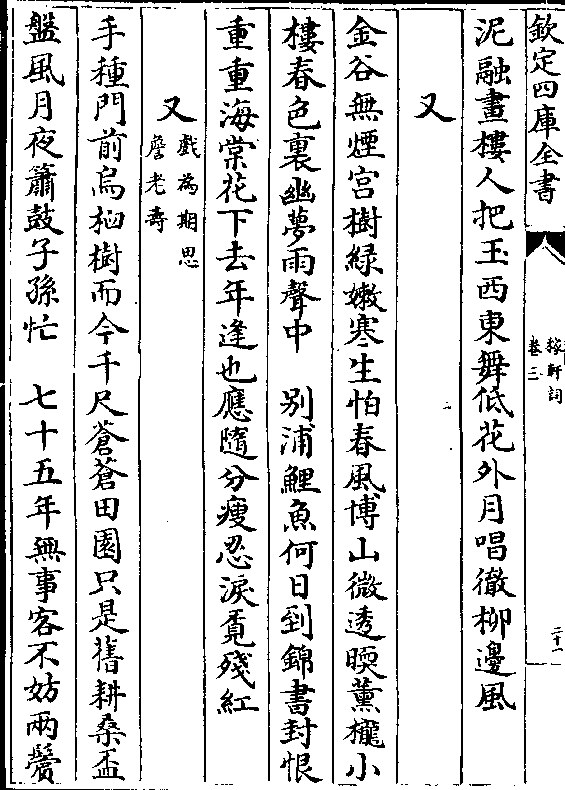 欽定四庫全書
稼軒詞
卷三
二十一
泥融畫樓人把玉西東舞低花外月唱徹柳邊風
又
金谷無煙宫樹緑嫩寒生怕春風博山微透暖薰櫳小
樓春色裏幽夢雨聲中　别浦鯉魚何日到錦書封恨
重重海棠花下去年逢也應隨分瘦忍淚覓殘紅
又
戲為期思
詹老壽
手種門前烏桕樹而今千尺蒼蒼田園只是舊耕桑盃
盤風月夜簫鼓子孫忙　七十五年無事客不妨兩鬢